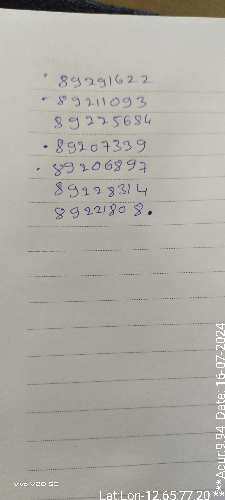 • 89291622
• 89211093
89225684
• 89207339
• 89206897
89228314
89221808.
vivo V20 SE
Lat:Lon-12.65:77.20
***Acur:9.94 Date: 16-07-2024